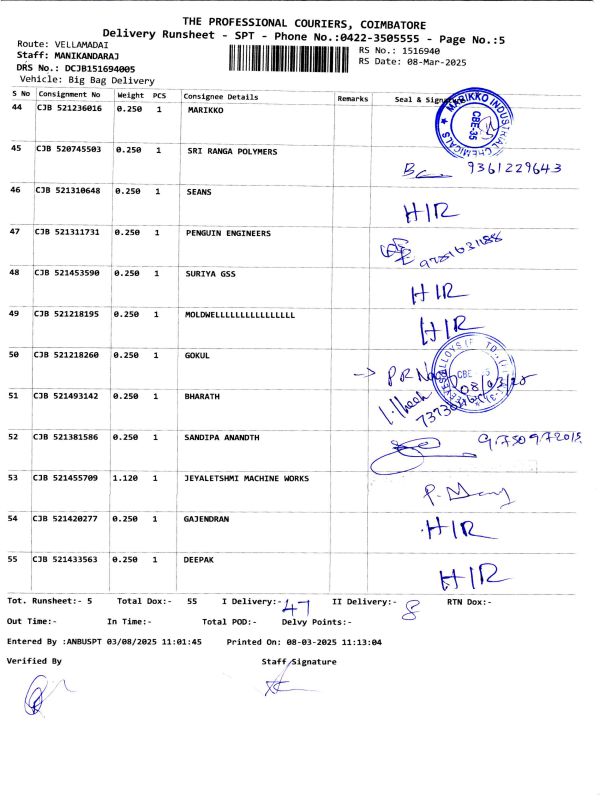 THE PROFESSIONAL COURIERS, COIMBATORE
Delivery Runsheet - SPT - Phone No.:0422-3505555 - Page No.:5
Route: VELLAMADAI
Staff: MANIKANDARAJ
DRS No.: DCJB151694005
Vehicle: Big Bag Delivery
RS No.: 1516940
RS Date: 08-Mar-2025
S No Consignment No Weight PCS Consignee Details Remarks Seal & Signature
44 CJB 521236016 0.250 1 MARIKKO
MARIKKO INDUSTRIAL CHEMICALS ★ CBE-35
45 CJB 520745503 0.250 1 SRI RANGA POLYMERS 9361229643
46 CJB 521310648 0.250 1 SEANS HIR
47 CJB 521311731 0.250 1 PENGUIN ENGINEERS
48 CJB 521453590 0.250 1 SURIYA GSS HIR
49 CJB 521218195 0.250 1 MOLDWELLLLLLLLLLLLLLLLL HIR
50 CJB 521218260 0.250 1 GOKUL
51 CJB 521493142 0.250 1 BHARATH
52 CJB 521381586 0.250 1 SANDIPA ANANDTH
53 CJB 521455709 1.120 1 JEYALETSHMI MACHINE WORKS
54 CJB 521420277 0.250 1 GAJENDRAN HIR
55 CJB 521433563 0.250 1 DEEPAK HIR
Tot. Runsheet:- 5 Total Dox:- 55 I Delivery:- 47 II Delivery:- 8 RTN Dox:-
Out Time:- In Time:- Total POD:- Delvy Points:-
Entered By :ANBUSPT 03/08/2025 11:01:45 Printed On: 08-03-2025 11:13:04
Verified By Staff Signature